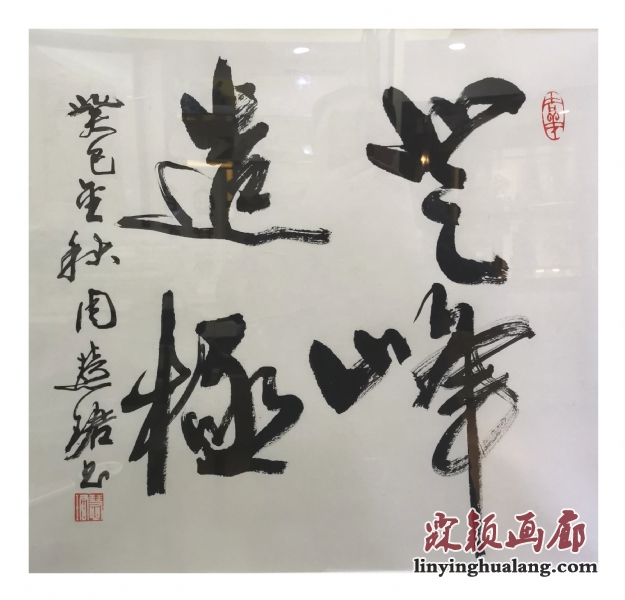 登峰
造極
癸巳金秋周慧珺书
霖颖画廊
linyinghualang.com